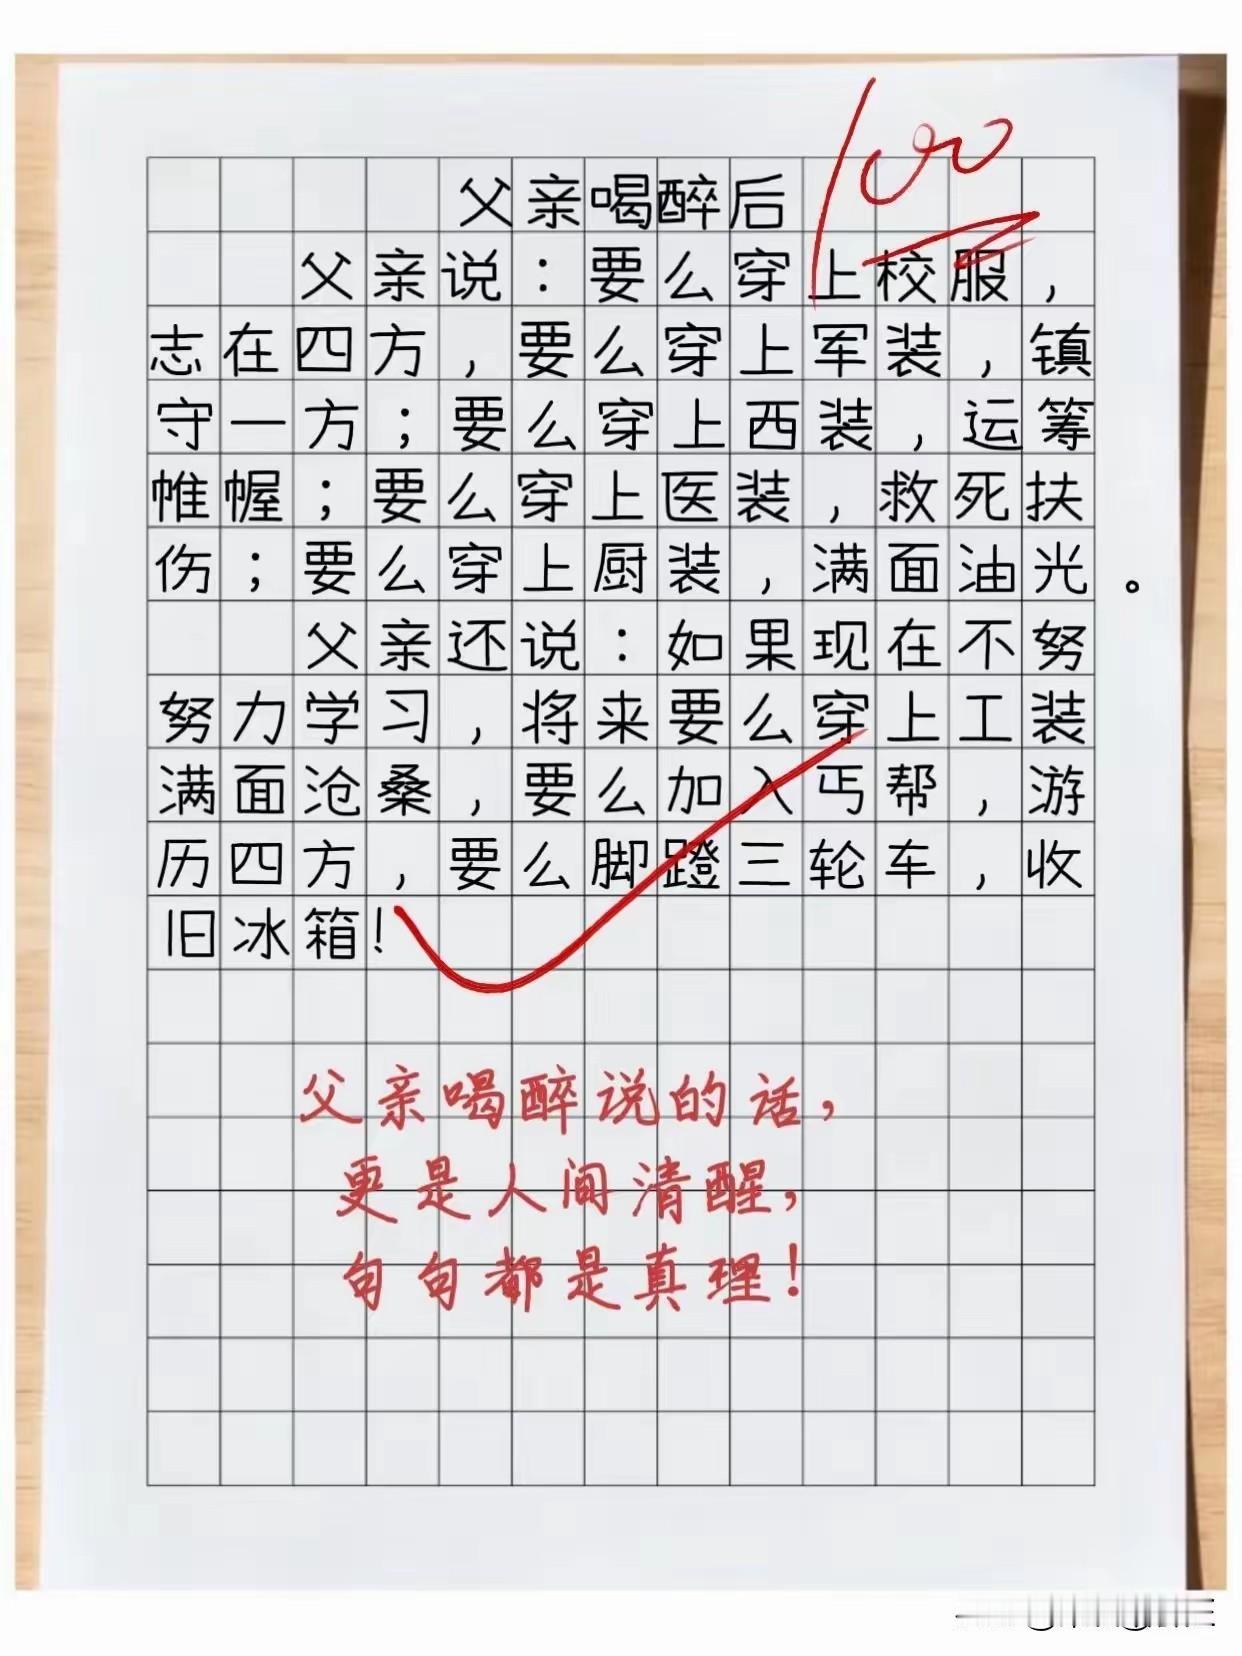 父亲喝醉后
100
父亲说：要么穿上校服，
志在四方，要么穿上军装，镇
守一方；要么穿上西装，运筹
帷幄；要么穿上医装，救死扶
伤；要么穿上厨装，满面油光。
父亲还说：如果现在不努
努力学习，将来要么穿上工装
满面沧桑，要么加入丐帮，游
历四方，要么脚蹬三轮车，收
旧冰箱！
父亲喝醉说的话，
更是人间清醒，
句句都是真理！